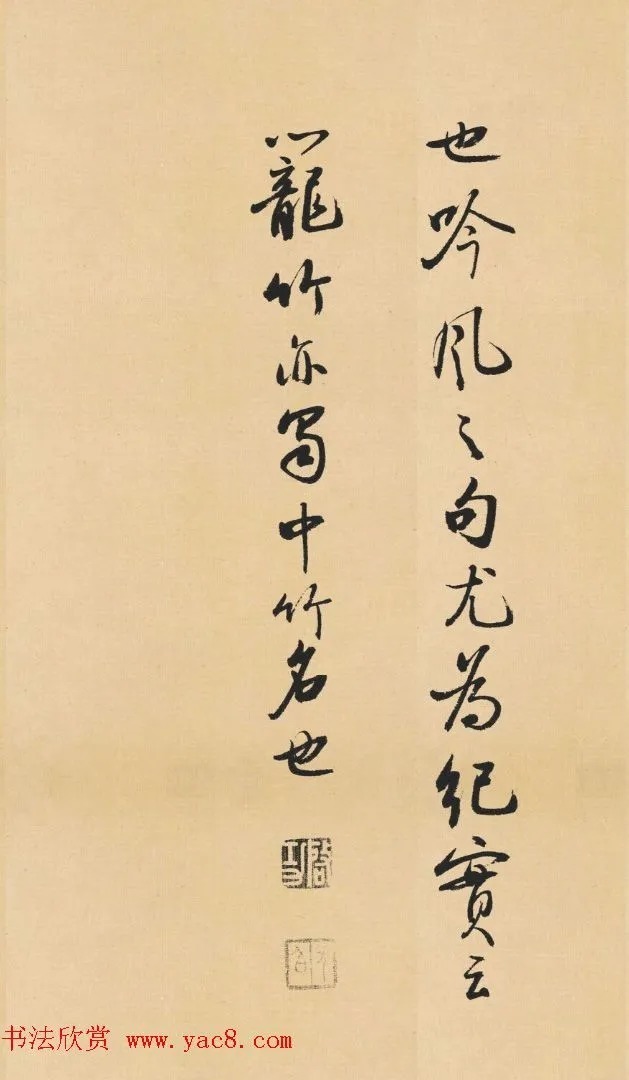 也吟风之句尤为纪實云
籠竹亦蜀中竹名也
启功
书法欣赏 www.yac8.com